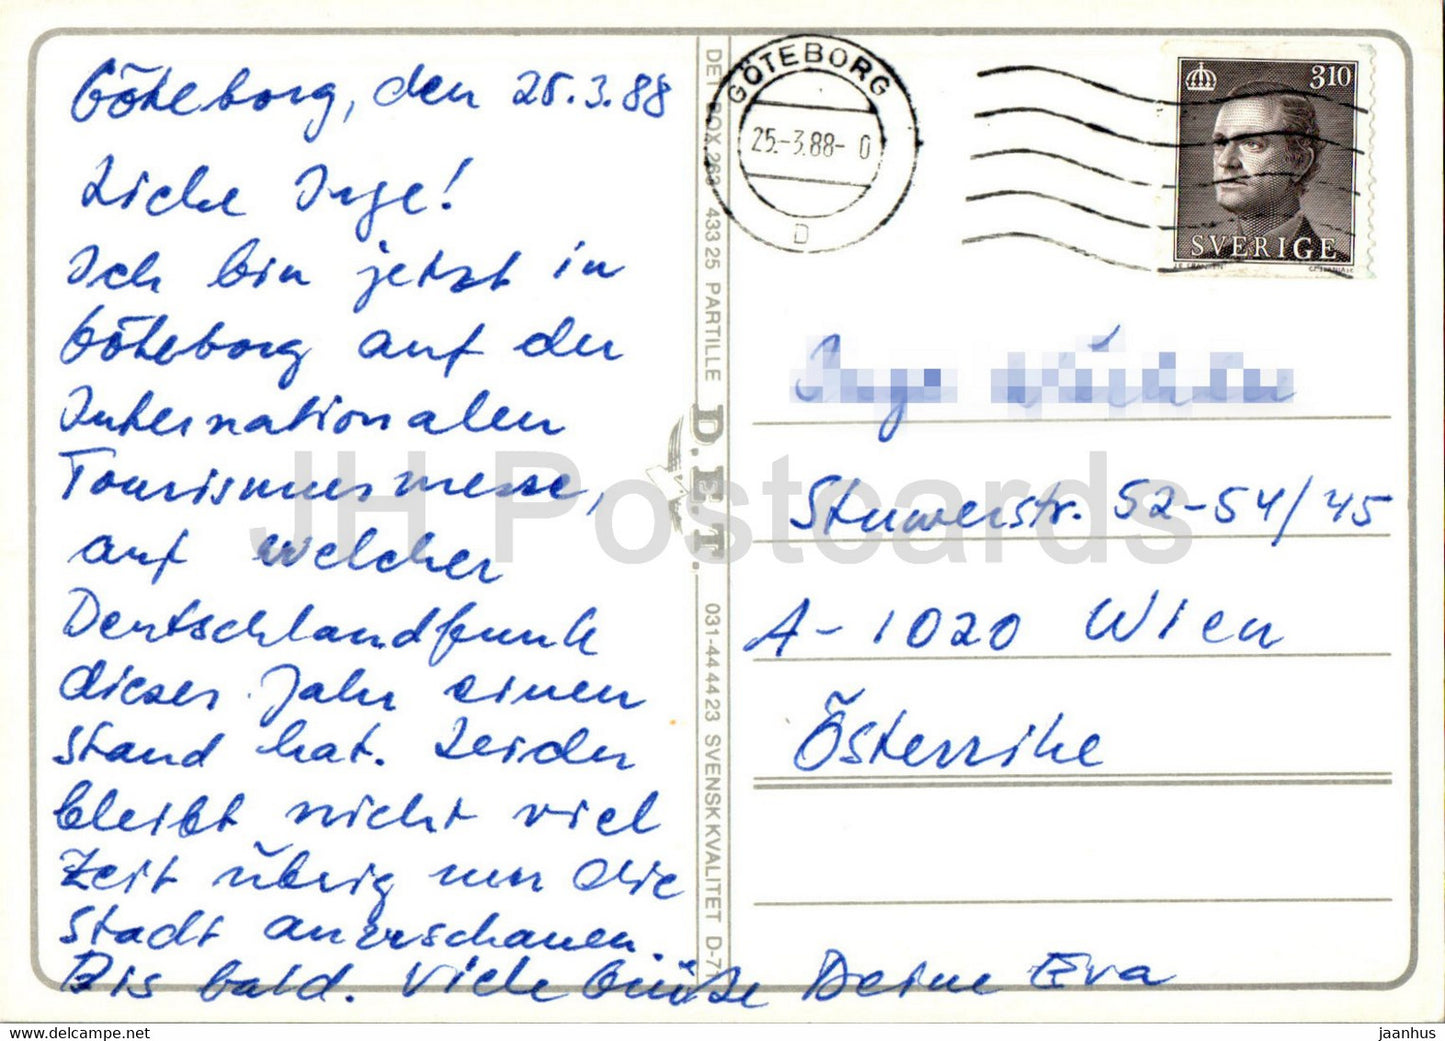 Göteborg, den 25.3.88
Liebe Inge!
Ich bin jetzt in
Göteborg auf der
Internationalen
Tourismusmesse,
auf welcher
Deutschlandfunk
dieses Jahr einen
Stand hat. Leider
bleibt nicht viel
Zeit übrig um die
Stadt anzuschauen.
Bis bald. Viele Grüße Deine Eva
DET BOX 263 433 25 PARTILLE
D.E.T.
031-44 44 23 SVENSK KVALITET D-71
GÖTEBORG
25.-3.88- 0
D
310
SVERIGE
Inge
Stuwerstr. 52-54/45
A-1020 Wien
Österrike
JH Postcards
https://www.delcampe.net
jaanhus